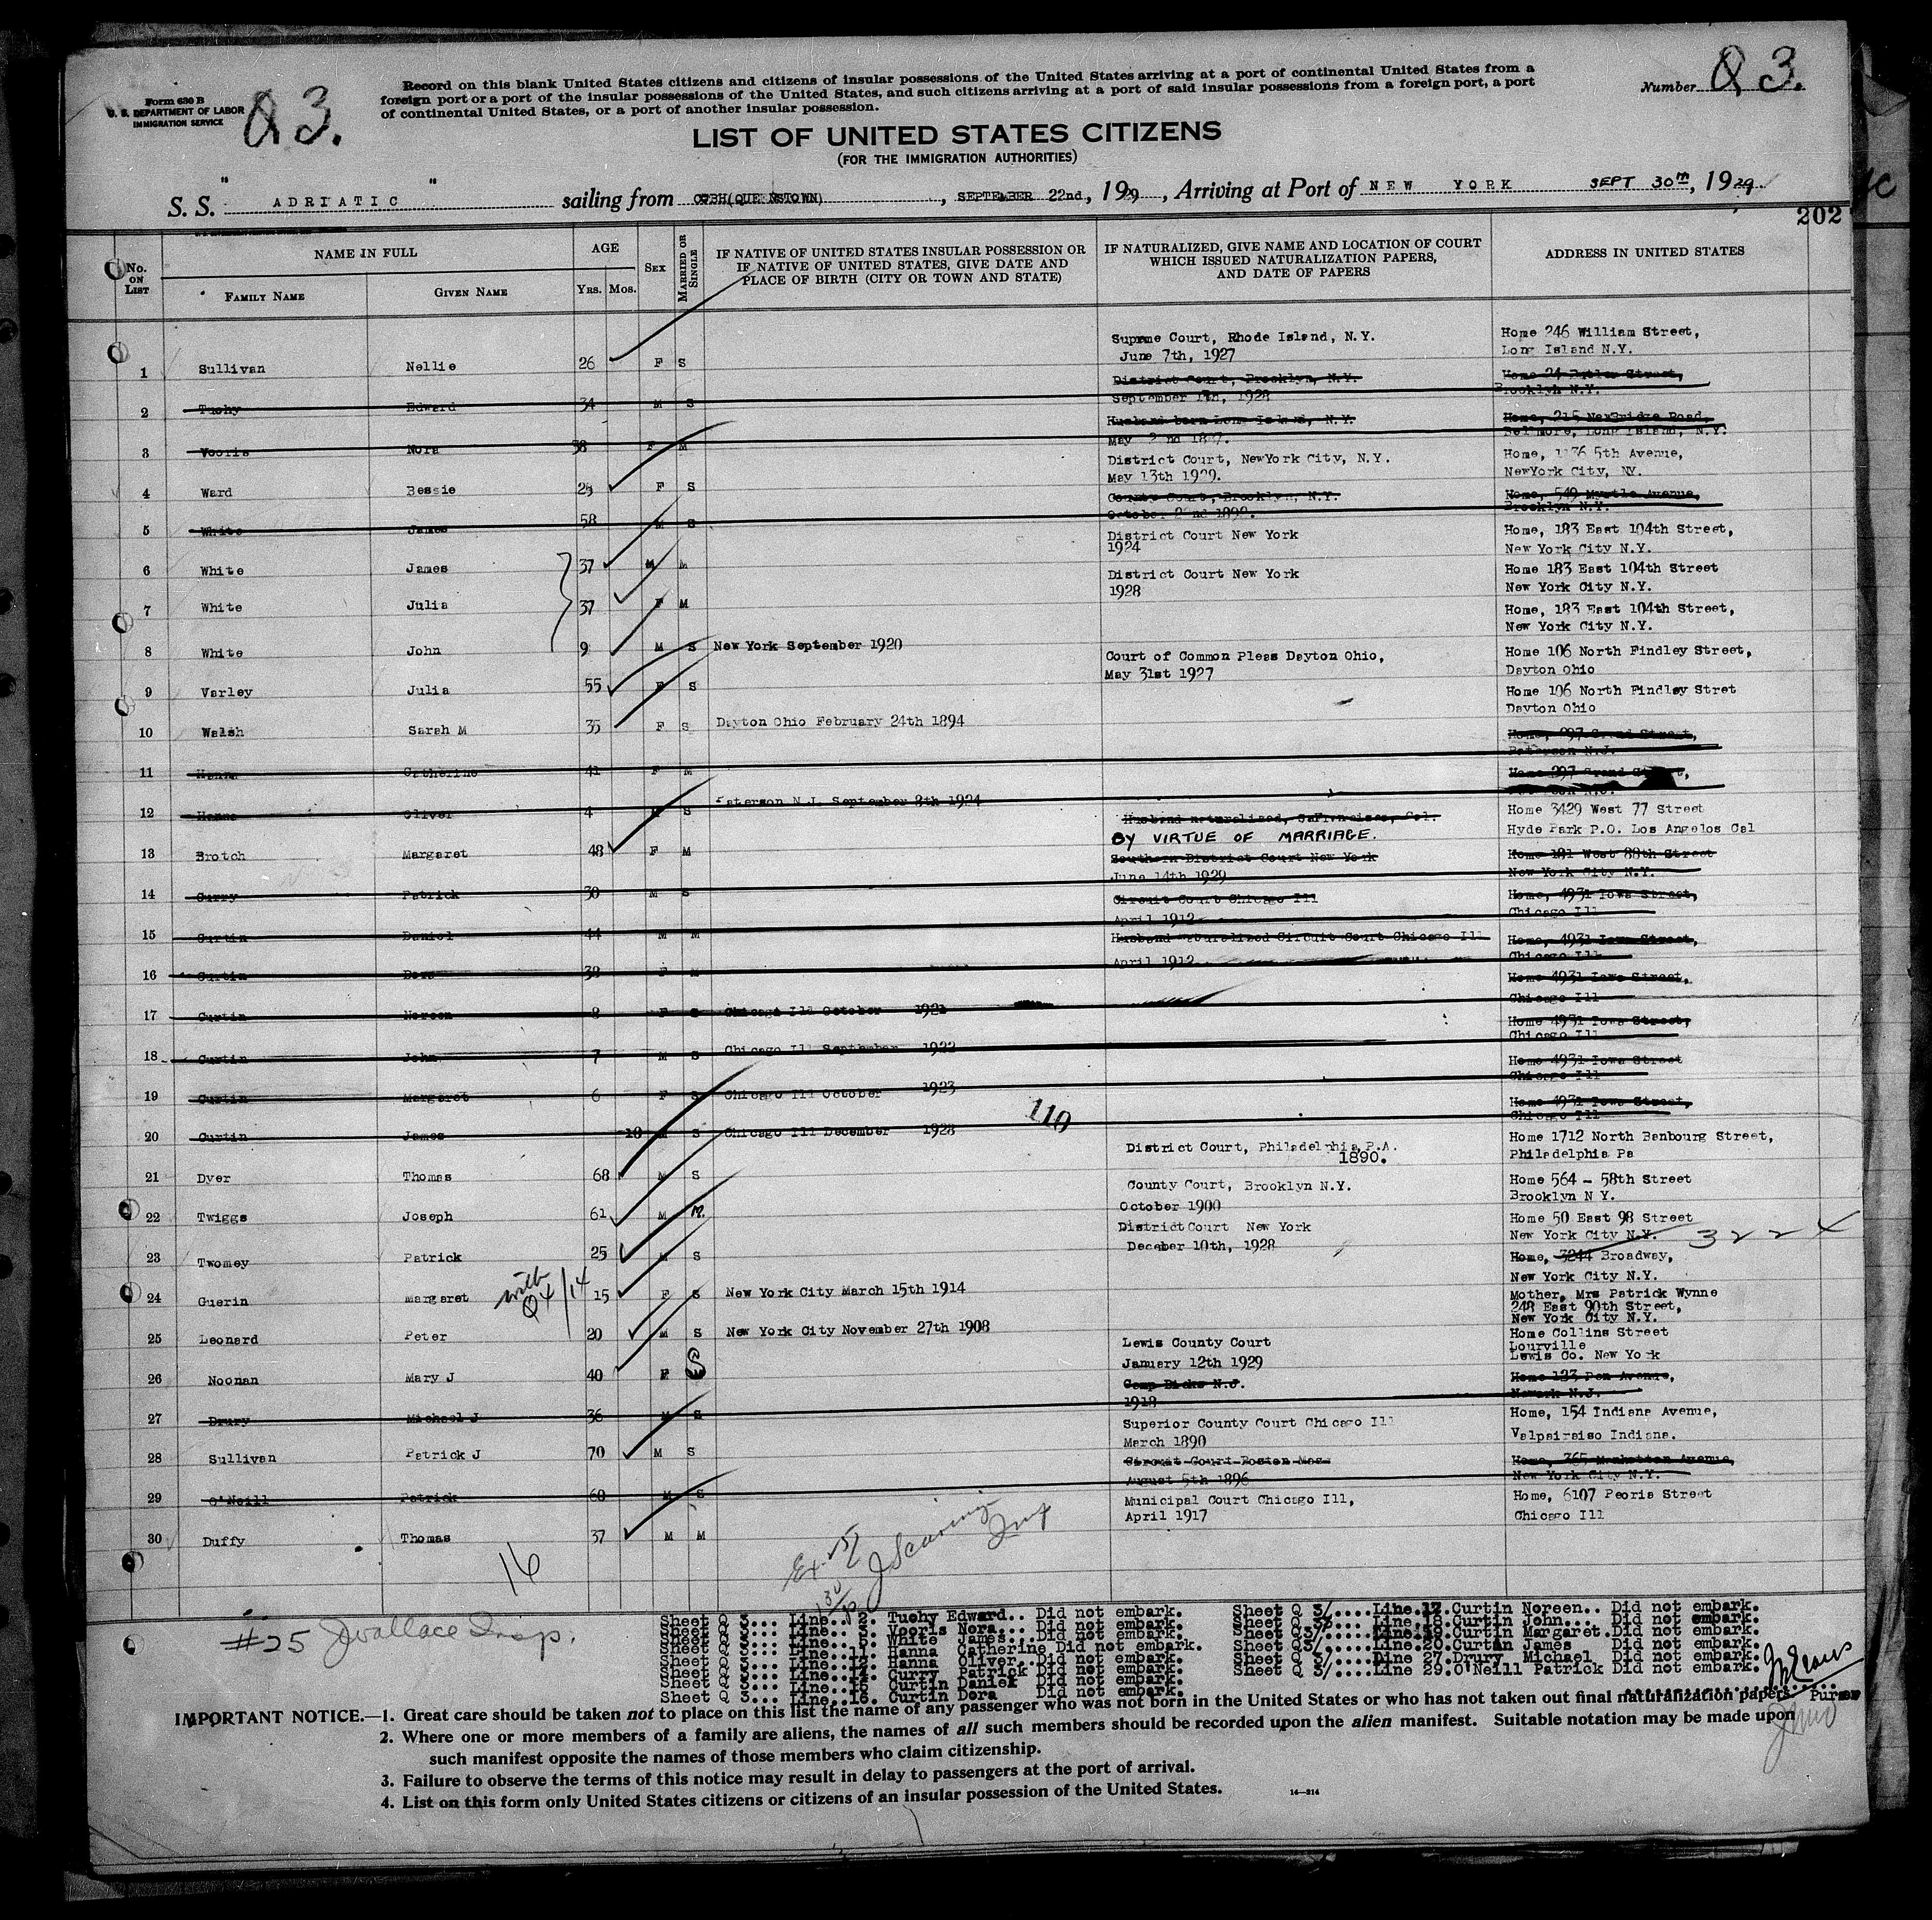 Form 630 B
U. S. DEPARTMENT OF LABOR
IMMIGRATION SERVICE
Q 3.
Record on this blank United States citizens and citizens of insular possessions of the United States arriving at a port of continental United States from a
foreign port or a port of the insular possessions of the United States, and such citizens arriving at a port of said insular possessions from a foreign port, a port
of continental United States, or a port of another insular possession.
Number Q 3.
LIST OF UNITED STATES CITIZENS
(FOR THE IMMIGRATION AUTHORITIES)
S. S. " ADRIATIC " sailing from COBH(QUEENSTOWN), SEPTEMBER 22nd, 1929, Arriving at Port of NEW YORK SEPT 30th, 1929
202
No. ON LIST
NAME IN FULL
FAMILY NAME
GIVEN NAME
AGE
Yrs. Mos.
SEX
MARRIED OR SINGLE
IF NATIVE OF UNITED STATES INSULAR POSSESSION OR
IF NATIVE OF UNITED STATES, GIVE DATE AND
PLACE OF BIRTH (CITY OR TOWN AND STATE)
IF NATURALIZED, GIVE NAME AND LOCATION OF COURT
WHICH ISSUED NATURALIZATION PAPERS,
AND DATE OF PAPERS
ADDRESS IN UNITED STATES
1 Sullivan Nellie 26 F S Supreme Court, Rhode Island, N.Y. Home 246 William Street,
June 7th, 1927 Long Island N.Y.
2 Tuohy Edward 34 M S District Court, Brooklyn, N.Y. Home 24 Butler Street,
September 1928 Brooklyn N.Y.
3 Vooris Nora 38 F M Husband born Long Island, N.Y. Home, 215 NewBridge Road,
May 2nd Bellmore, Long Island, N.Y.
4 Ward Bessie F S District Court, NewYork City, N.Y. Home, 5th Avenue,
May 13th 1929. NewYork City, NY.
5 White James 58 M S County Court, Brooklyn, N.Y. Home, 549 Myrtle Avenue,
October Brooklyn N.Y.
6 White James 37 M M District Court New York Home, 183 East 104th Street,
1924 New York City N.Y.
7 White Julia 37 F M District Court New York Home 183 East 104th Street
1928 New York City N.Y.
8 White John 9 M S New York September 1920 Home, 183 East 104th Street,
New York City N.Y.
9 Varley Julia 55 F S Court of Common Pleas Dayton Ohio, Home 106 North Findley Street,
May 31st 1927 Dayton Ohio
10 Walsh Sarah M 35 F S Dayton Ohio February 24th 1894 Home 106 North Findley Stret
Dayton Ohio
11 Hanna Catherine 41 F M Home, 297 Grand Street,
Paterson N.J.
12 Hanna Oliver 4 M S Paterson N.J. September 8th 1924 Home 297 Grand Street,
13 Brotch Margaret 48 F M Husband naturalized, Cal. Home 3429 West 77 Street
BY VIRTUE OF MARRIAGE. Hyde Park P.O. Los Angelos Cal
14 Curry Patrick 30 M S Southern District Court New York Home 181 West 88th Street
June 14th 1929 New York City N.Y.
15 Curtin Daniel 44 M M Circuit Court Chicago Ill Home, 4931 Iowa Street,
April 1912 Chicago Ill
16 Curtin Dora 38 F M Husband naturalized Circuit Court Chicago Ill Home, 4931 Iowa Street,
April 1912 Chicago Ill
17 Curtin Noreen 8 F S Chicago Ill October 1921 Home 4931 Iowa Street,
Chicago Ill
18 Curtin John 7 M S Chicago Ill September 1922 Home 4931 Iowa Street,
Chicago Ill
19 Curtin Margaret 6 F S Chicago Ill October 1923 Home 4931 Iowa Street
Chicago Ill
20 Curtin James 10 M S Chicago Ill December 1928 110 Home 4931 Iowa Street,
Chicago Ill
21 Dyer Thomas 68 M S District Court, Philadelphia, P.A. Home 1712 North Banbourg Street,
1890. Philadelphia Pa
22 Twiggs Joseph 61 M M. County Court, Brooklyn N.Y. Home 564 - 58th Street
October 1900 Brooklyn N Y.
23 Twomey Patrick 25 M S DistrictCourt New York Home 50 East 98 Street
Decmber 10th, 1928 New York City N.Y.
24 Guerin Margaret with Q4/14 15 F S New York City March 15th 1914 Home, 3244 Broadway, 3224
New York City N.Y.
25 Leonard Peter 20 M S New York City November 27th 1908 Mother, Mrs Patrick Wynne
248 East 90th Street,
New York City N.Y.
26 Noonan Mary J 40 F S Lewis County Court Home Collins Street
January 12th 1929 Lourville
Lewis Co. New York
27 Drury Michael J 36 M S Camp Dicks N.J. Home 123 Pen Avenue,
1918 Newark N.J.
28 Sullivan Patrick J 70 M S Superior County Court Chicago Ill Home, 154 Indiana Avenue,
March 1890 Valpairaiso Indiana.
29 O'Neill Patrick 60 M S Circuit Court Boston Mass Home, 365 Manhattan Avenue,
August 5th 1896 New York City N.Y.
30 Duffy Thomas 37 M M Municipal Court Chicago Ill, Home, 6107 Peoria Street
April 1917 Chicago Ill
16
#25 JWallace Insp.
Sheet Q 3... Line..2. Tuohy Edward.. Did not embark.
Sheet Q 3... Line..3. Vooris Nora... Did not embark.
Sheet Q 3... Line..5. White James... Did not embark.
Sheet Q 3... Line..11. Hanna Catherine Did not embark.
Sheet Q 3... Line..12. Hanna Oliver.. Did not embark.
Sheet Q 3... Line..14. Curry Patrick Did not embark.
Sheet Q 3... Line..15. Curtin Daniel Did not embark.
Sheet Q 3... Line..16. Curtin Dora Did not embark.
Sheet Q 3/....Line.17.Curtin Noreen.. Did not embark.
Sheet Q 3/....Line.18.Curtin John... Did not embark.
Sheet Q3/....Line.19.Curtin Margaret.Did not embark.
Sheet Q3/....Line.20.Curtan James Did not embark.
Sheet Q 3/....Dine 27.Drury Michael Did not embark.
Sheet Q 3/....Line 29.O'Neill Patrick Did not embark.
Purser
IMPORTANT NOTICE.—1. Great care should be taken not to place on this list the name of any passenger who was not born in the United States or who has not taken out final naturalization papers.
2. Where one or more members of a family are aliens, the names of all such members should be recorded upon the alien manifest. Suitable notation may be made upon
such manifest opposite the names of those members who claim citizenship.
3. Failure to observe the terms of this notice may result in delay to passengers at the port of arrival.
4. List on this form only United States citizens or citizens of an insular possession of the United States.
14—214